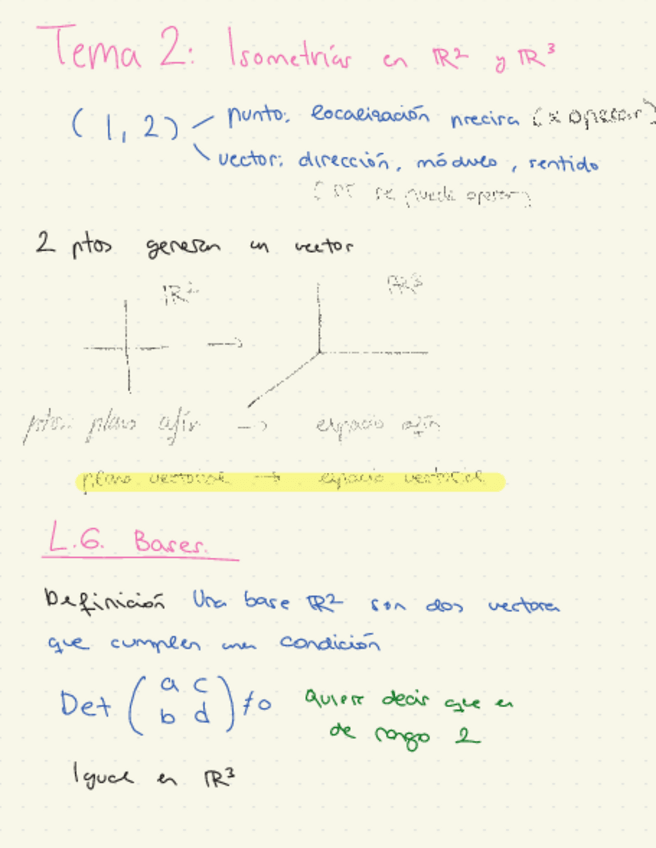 Tema 2: Isometrías en ℝ² y ℝ³
(1, 2) punto: localización precisa (x operar)
vector: dirección, módulo, sentido
se puede operar)
2 ptos generan un vector
ℝ² → ℝ³
ptos: plano afín → espacio afín
plano vectorial → espacio vectorial
L.6. Bases.
Definición Una base ℝ² son dos vectores
que cumplen una condición
Det (a c
b d) ≠0 quiere decir que es
de rango 2
Igual en ℝ³